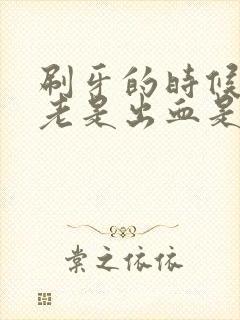 刷牙的时候
老是出血是
棠之依依